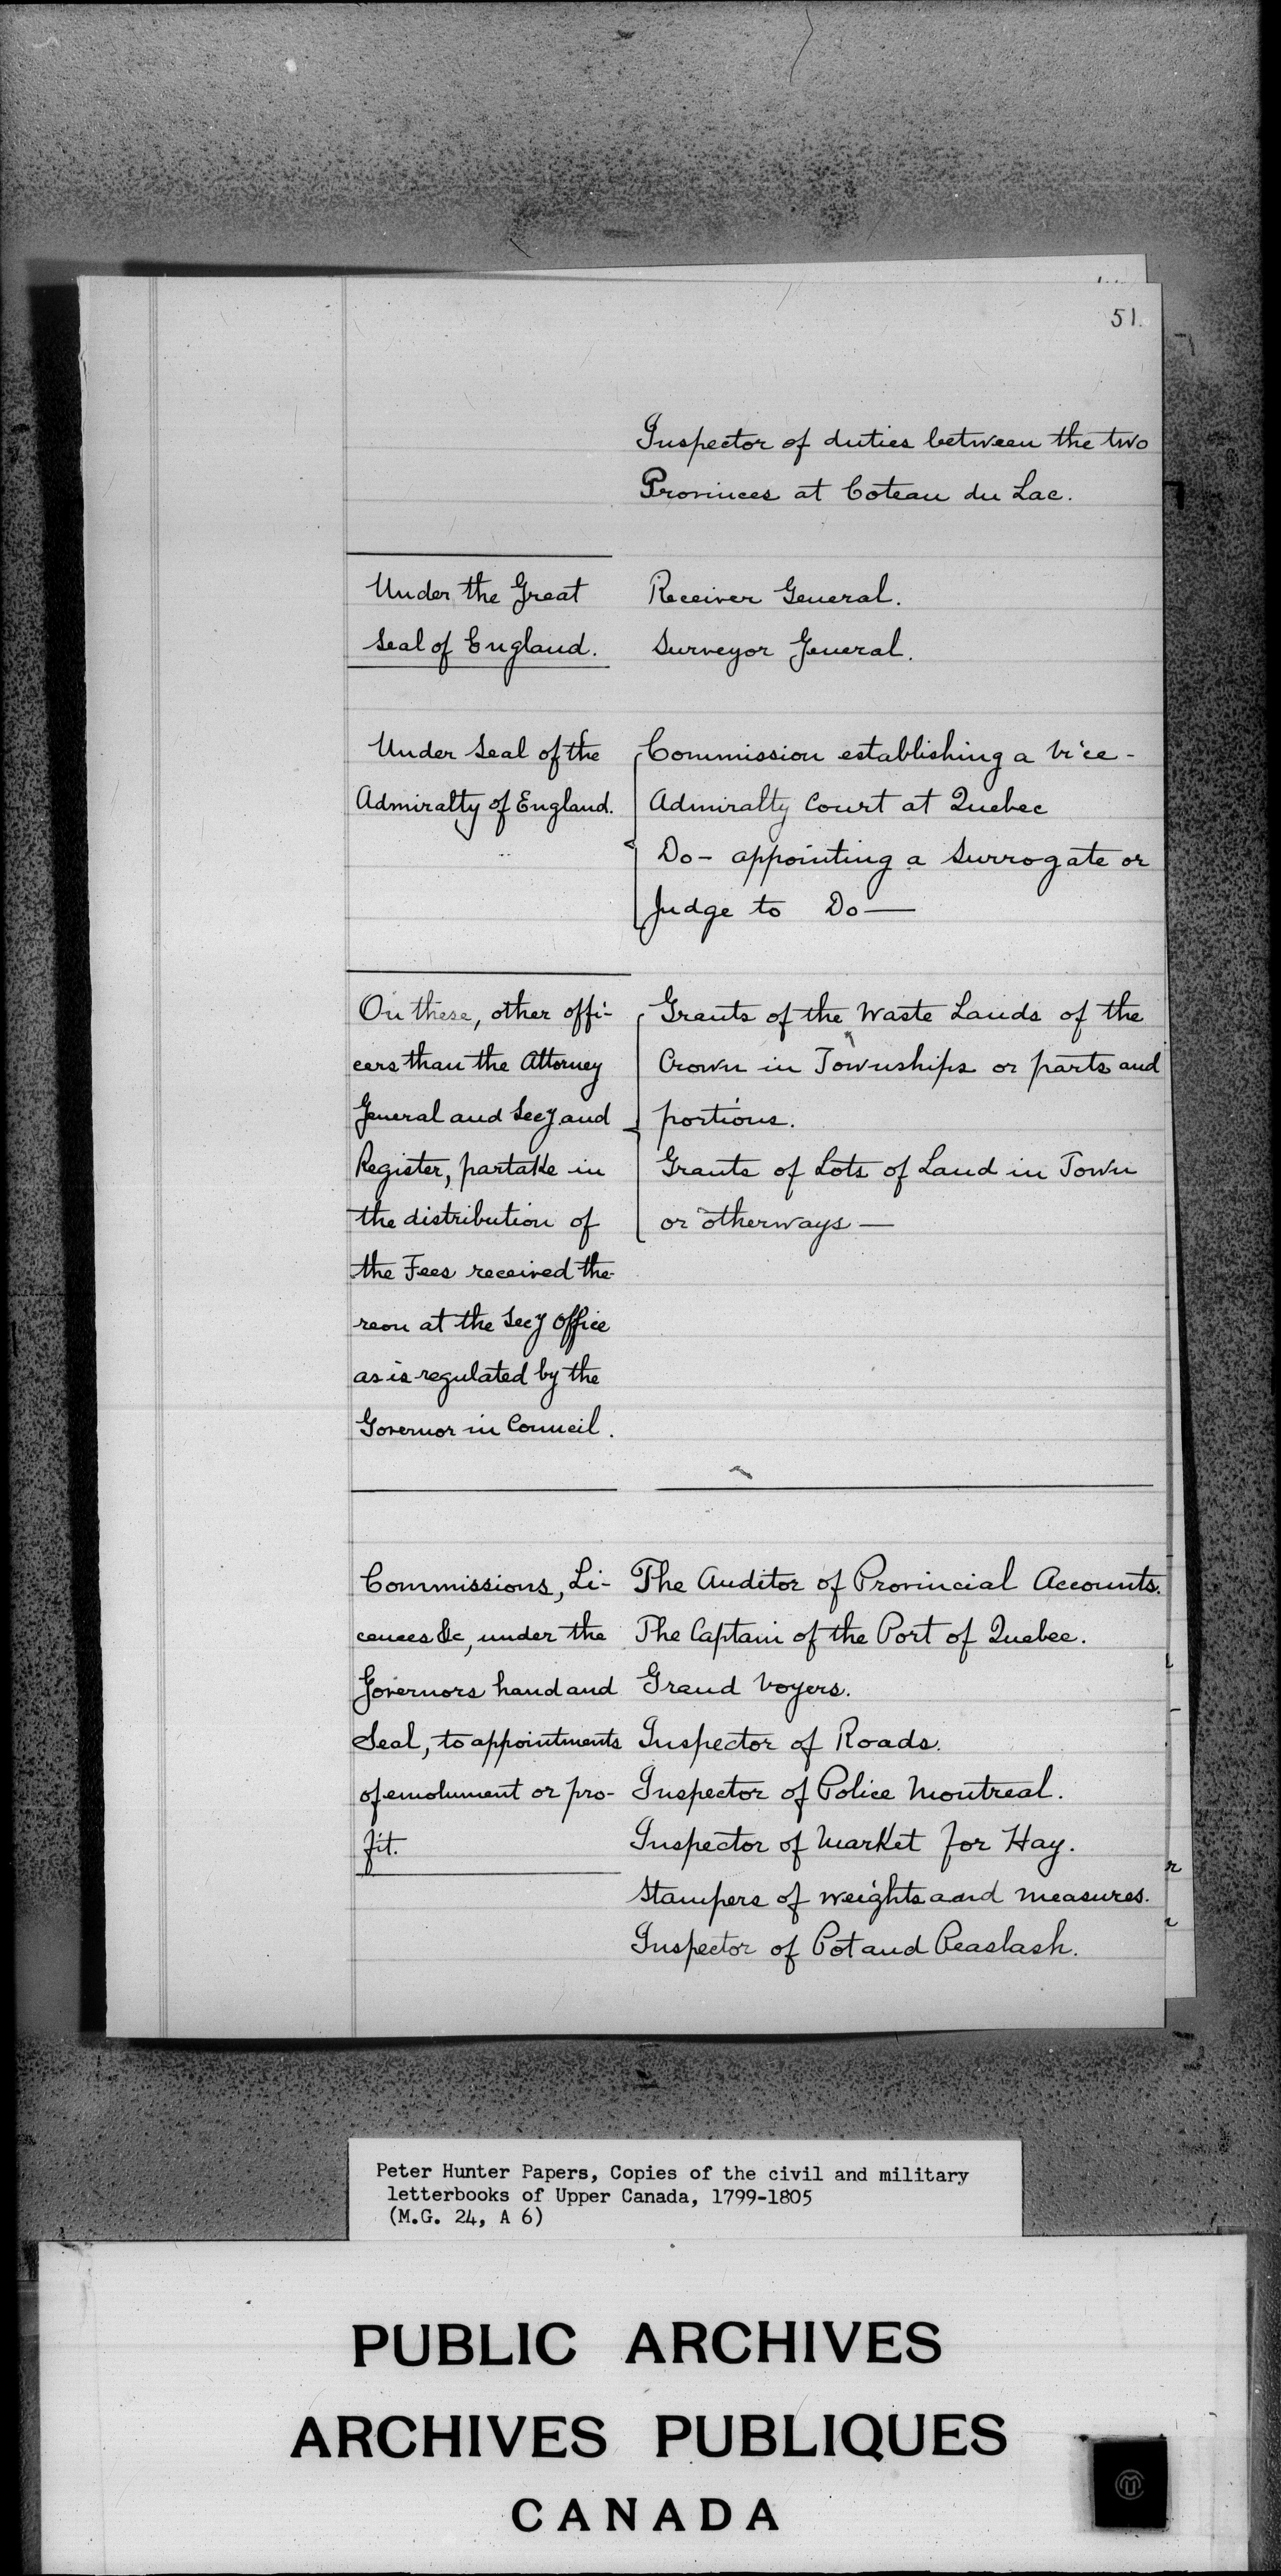 51.
Inspector of duties between the two
Provinces at Coteau du Lac.
Under the Great
Seal of England.
Receiver General.
Surveyor General.
Under Seal of the
Admiralty of England.
Commission establishing a Vice-
Admiralty Court at Quebec
Do- appointing a Surrogate or
Judge to Do—
On these, other offi-
cers than the Attorney
General and Secy and
Register, partake in
the distribution of
the Fees received the-
reon at the Secy Office
as is regulated by the
Governor in Council.
Grants of the Waste Lands of the
Crown in Townships or parts and
portions.
Grants of Lots of Land in Town
or otherways —
Commissions, Li-
cences &c, under the
Governors hand and
Seal, to appointments
of emolument or pro-
fit.
The Auditor of Provincial Accounts.
The Captain of the Port of Quebec.
Grand Voyers.
Inspector of Roads.
Inspector of Police Montreal.
Inspector of Market for Hay.
Stampers of weights and measures.
Inspector of Pot and Peaslash.
Peter Hunter Papers, Copies of the civil and military
letterbooks of Upper Canada, 1799-1805
(M.G. 24, A 6)
PUBLIC ARCHIVES
ARCHIVES PUBLIQUES
CANADA